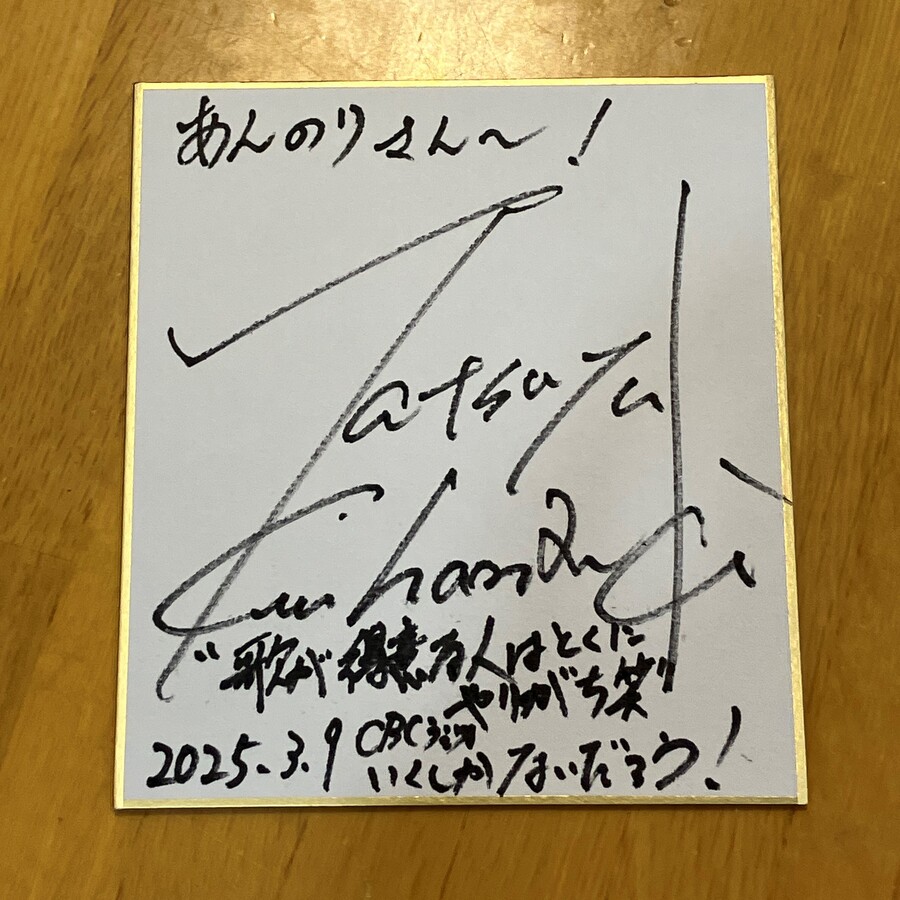 あんのりさん〜!
Tatsuya
Kuwha
"歌が得意な人はとくに
やりがち笑"
2025.3.9 CBCラジオ
いくしかないだろう!